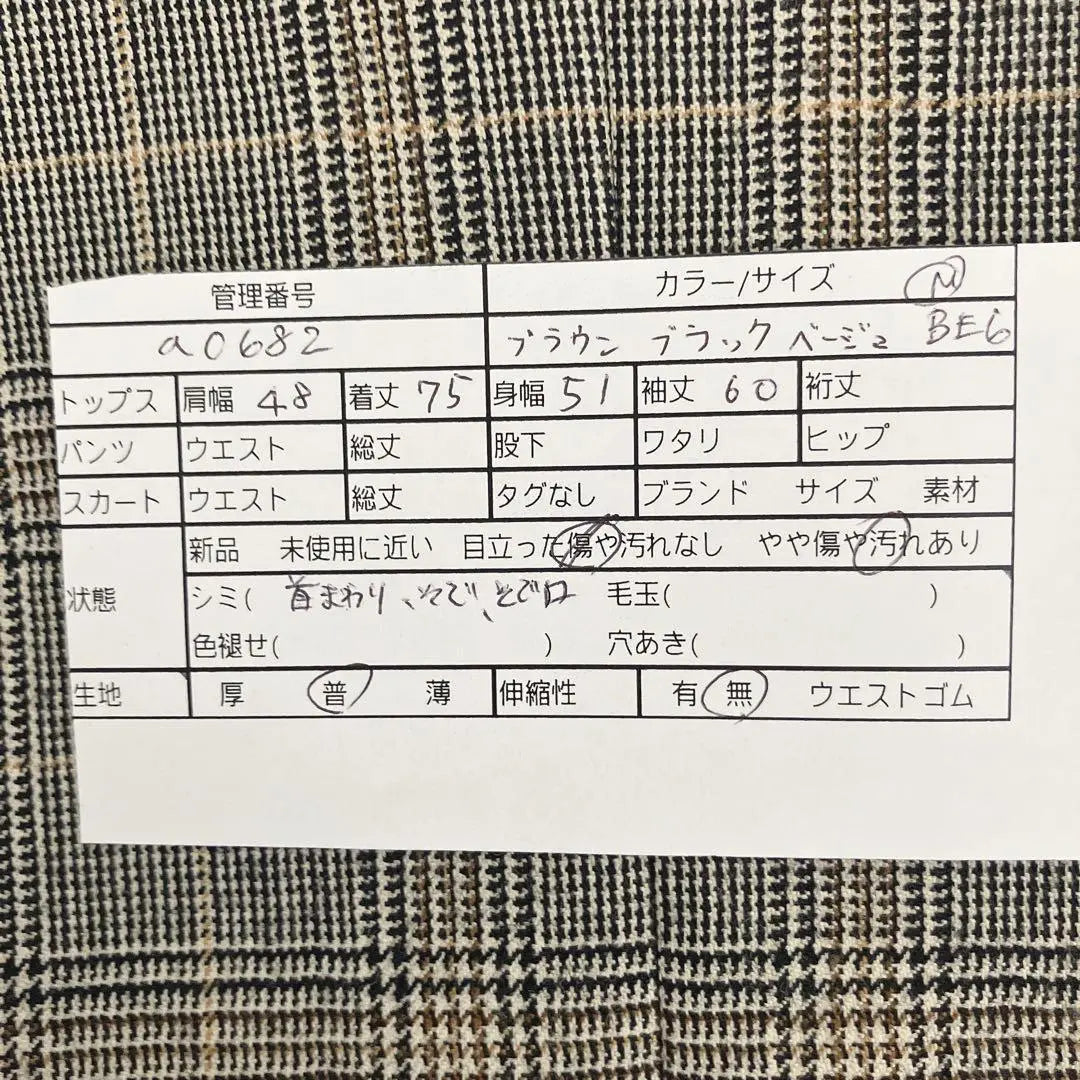 管理番号 カラー/サイズ M
a0682 ブラウン ブラック ベージュ BE6
トップス 肩幅 48 着丈 75 身幅 51 袖丈 60 裄丈
パンツ ウエスト 総丈 股下 ワタリ ヒップ
スカート ウエスト 総丈 タグなし ブランド サイズ 素材
状態 新品 未使用に近い 目立った傷や汚れなし やや傷や汚れあり
シミ( 首まわり、そで、そで口 毛玉( )
色褪せ( ) 穴あき( )
生地 厚 普 薄 伸縮性 有 無 ウエストゴム